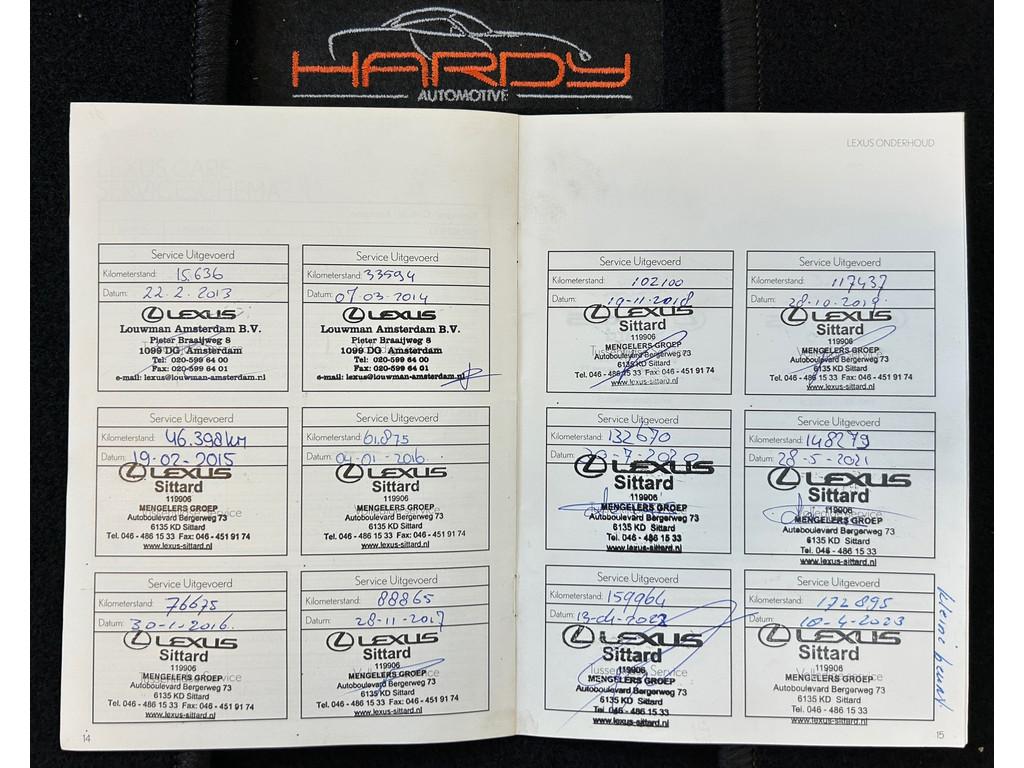 HARDY
AUTOMOTIVE
LEXUS ONDERHOUD
LEXUS CARE
Service Uitgevoerd
Kilometerstand: 15.636
Datum: 22.2.2013
LEXUS
Louwman Amsterdam B.V.
Pieter Braaijweg 8
1099 DG Amsterdam
Tel: 020-599 64 00
Fax: 020-599 64 01
e-mail: lexus@louwman-amsterdam.nl
Service Uitgevoerd
Kilometerstand: 33594
Datum: 07-03-2014
LEXUS
Louwman Amsterdam B.V.
Pieter Braaijweg 8
1099 DG Amsterdam
Tel: 020-599 64 00
Fax: 020-599 64 01
e-mail: lexus@louwman-amsterdam.nl
Service Uitgevoerd
Kilometerstand: 46.398km
Datum: 19-02-2015
LEXUS
Sittard
119906
MENGELERS GROEP
Autoboulevard Bergerweg 73
6135 KD Sittard
Tel. 046 - 486 15 33 Fax: 046 - 451 91 74
www.lexus-sittard.nl
Service Uitgevoerd
Kilometerstand: 61.875
Datum: 04-01-2016
LEXUS
Sittard
119906
MENGELERS GROEP
Autoboulevard Bergerweg 73
6135 KD Sittard
Tel. 046 - 486 15 33 Fax: 046 - 451 91 74
www.lexus-sittard.nl
Service Uitgevoerd
Kilometerstand: 76675
Datum: 30-1-2016.
LEXUS
Sittard
119906
MENGELERS GROEP
Autoboulevard Bergerweg 73
6135 KD Sittard
Tel. 046 - 486 15 33 Fax: 046 - 451 91 74
www.lexus-sittard.nl
Service Uitgevoerd
Kilometerstand: 88865
Datum: 28-11-2017
LEXUS
Sittard
119906
MENGELERS GROEP
Autoboulevard Bergerweg 73
6135 KD Sittard
Tel. 046 - 486 15 33 Fax: 046 - 451 91 74
www.lexus-sittard.nl
14
Service Uitgevoerd
Kilometerstand: 102100
Datum: 19-11-2018
LEXUS
Sittard
119906
MENGELERS GROEP
Autoboulevard Bergerweg 73
6135 KD Sittard
Tel. 046 - 486 15 33 Fax: 046 - 451 91 74
www.lexus-sittard.nl
Service Uitgevoerd
Kilometerstand: 117437
Datum: 28-10-2019.
LEXUS
Sittard
119906
MENGELERS GROEP
Autoboulevard Bergerweg 73
6135 KD Sittard
Tel. 046 - 486 15 33 Fax: 046 - 451 91 74
www.lexus-sittard.nl
Service Uitgevoerd
Kilometerstand: 132670
Datum: -7-2020
LEXUS
Sittard
119906
MENGELERS GROEP
Autoboulevard Bergerweg 73
6135 KD Sittard
Tel. 046 - 486 15 33
www.lexus-sittard.nl
Service Uitgevoerd
Kilometerstand: 148279
Datum: 28-5-2021
LEXUS
Sittard
119906
MENGELERS GROEP
Autoboulevard Bergerweg 73
6135 KD Sittard
Tel. 046 - 486 15 33
www.lexus-sittard.nl
Service Uitgevoerd
Kilometerstand: 159964
Datum: 13-04-2022
LEXUS
Sittard
Tussentijdse Service
119906
MENGELERS GROEP
Autoboulevard Bergerweg 73
6135 KD Sittard
Tel. 046 - 486 15 33
www.lexus-sittard.nl
Service Uitgevoerd
Kilometerstand: 172895
Datum: 18-4-2023
LEXUS
Sittard
119906
MENGELERS GROEP
Autoboulevard Bergerweg 73
6135 KD Sittard
Tel. 046 - 486 15 33
www.lexus-sittard.nl
15